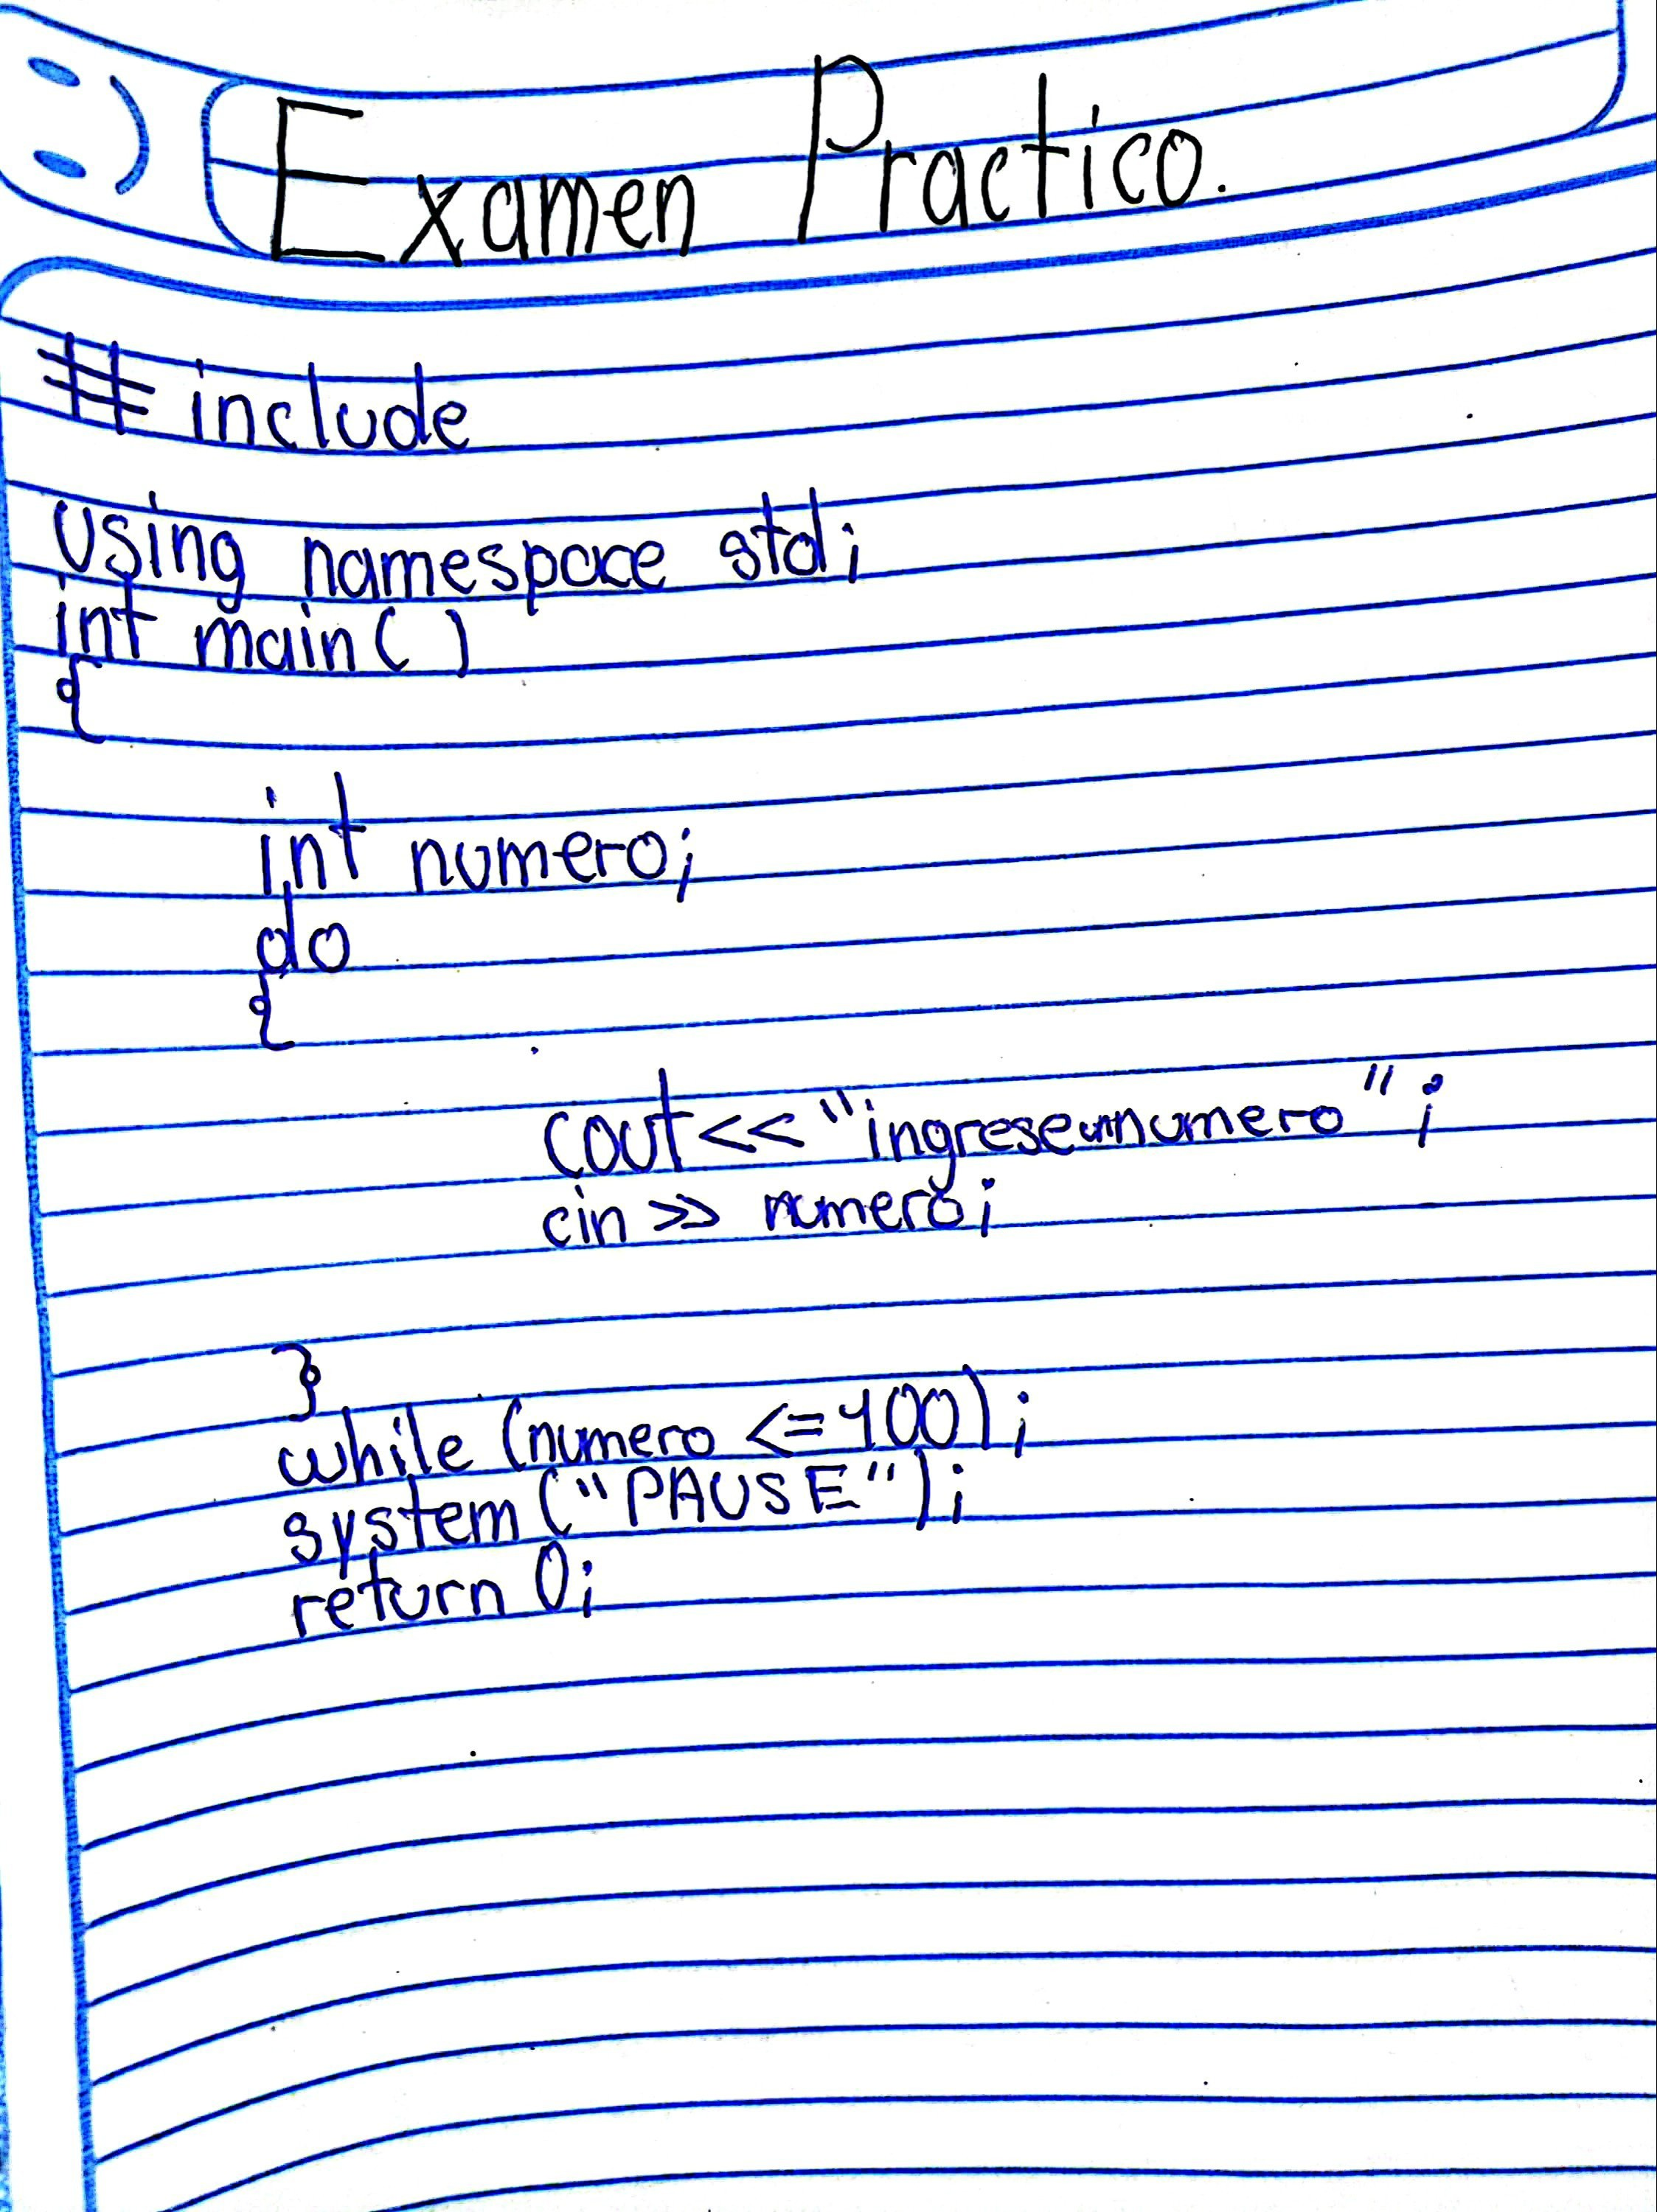 Examen Practico.
# include
using namespace std;
int main()
{
int numero;
do
{
cout<<"ingreseunnumero";
cin >> numero;
}
while (numero <=100);
system ("PAUSE");
return 0;